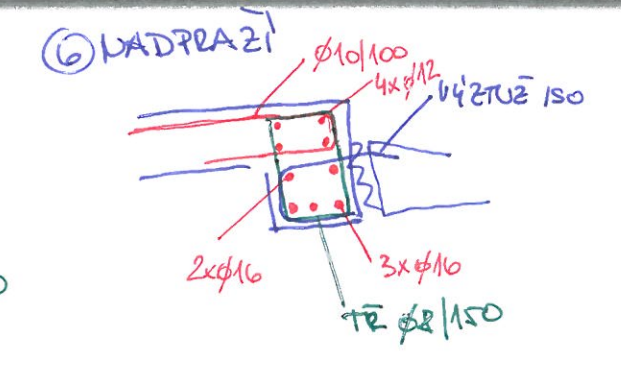 6 NADPRAŽÍ
ϕ10/100
4xϕ12
VÝZTUŽ ISO
2xϕ16
3xϕ16
TŘ ϕ8/150